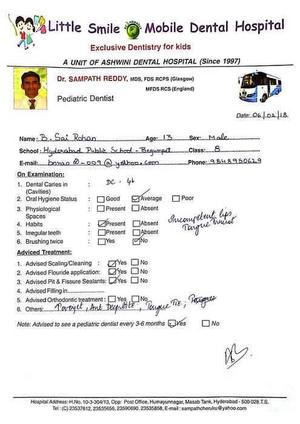 Little Smile Mobile Dental Hospital
Exclusive Dentistry for kids
A UNIT OF ASHWINI DENTAL HOSPITAL (Since 1997)
Dr. SAMPATH REDDY, MDS, FDS RCPS (Glasgow)
MFDS RCS (England)
Pediatric Dentist
Date: 06/02/18
Name: B. Sai Rohan Age: 13 Sex: Male
School: Hyderabad Public School - Begumpet Class: 8
E-mail: Phone:
On Examination:
1. Dental Caries in (Cavities) : DC - 46
2. Oral Hygiene Status : Good Average Poor
3. Physiological Spaces : Present Absent
4. Habits : Present Absent Incompetent lips
5. Irregular teeth : Present Absent
6. Brushing twice : Yes No
Advised Treatment:
1. Advised Scaling/Cleaning : Yes No
2. Advised Flouride application: Yes No
3. Advised Pit & Fissure Sealants: Yes No
4. Advised Filling in
5. Advised Orthodontic treatment : Yes No
6. Others: Tongue Tie,
Note: Advised to see a pediatric dentist every 3-6 months : Yes No
Hospital Address: H.No. 10-3-304/13, Opp: Post Office, Humayunnagar, Masab Tank, Hyderabad - 500 028.T.S.
Tel: (C) 23537812, 23535656, 23590690, 23535858, E-mail : sampathcheruku@yahoo.com